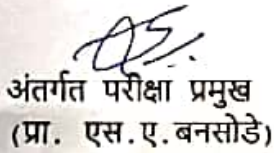 अंतर्गत परीक्षा प्रमुख
(प्रा. एस.ए.बनसोडे)